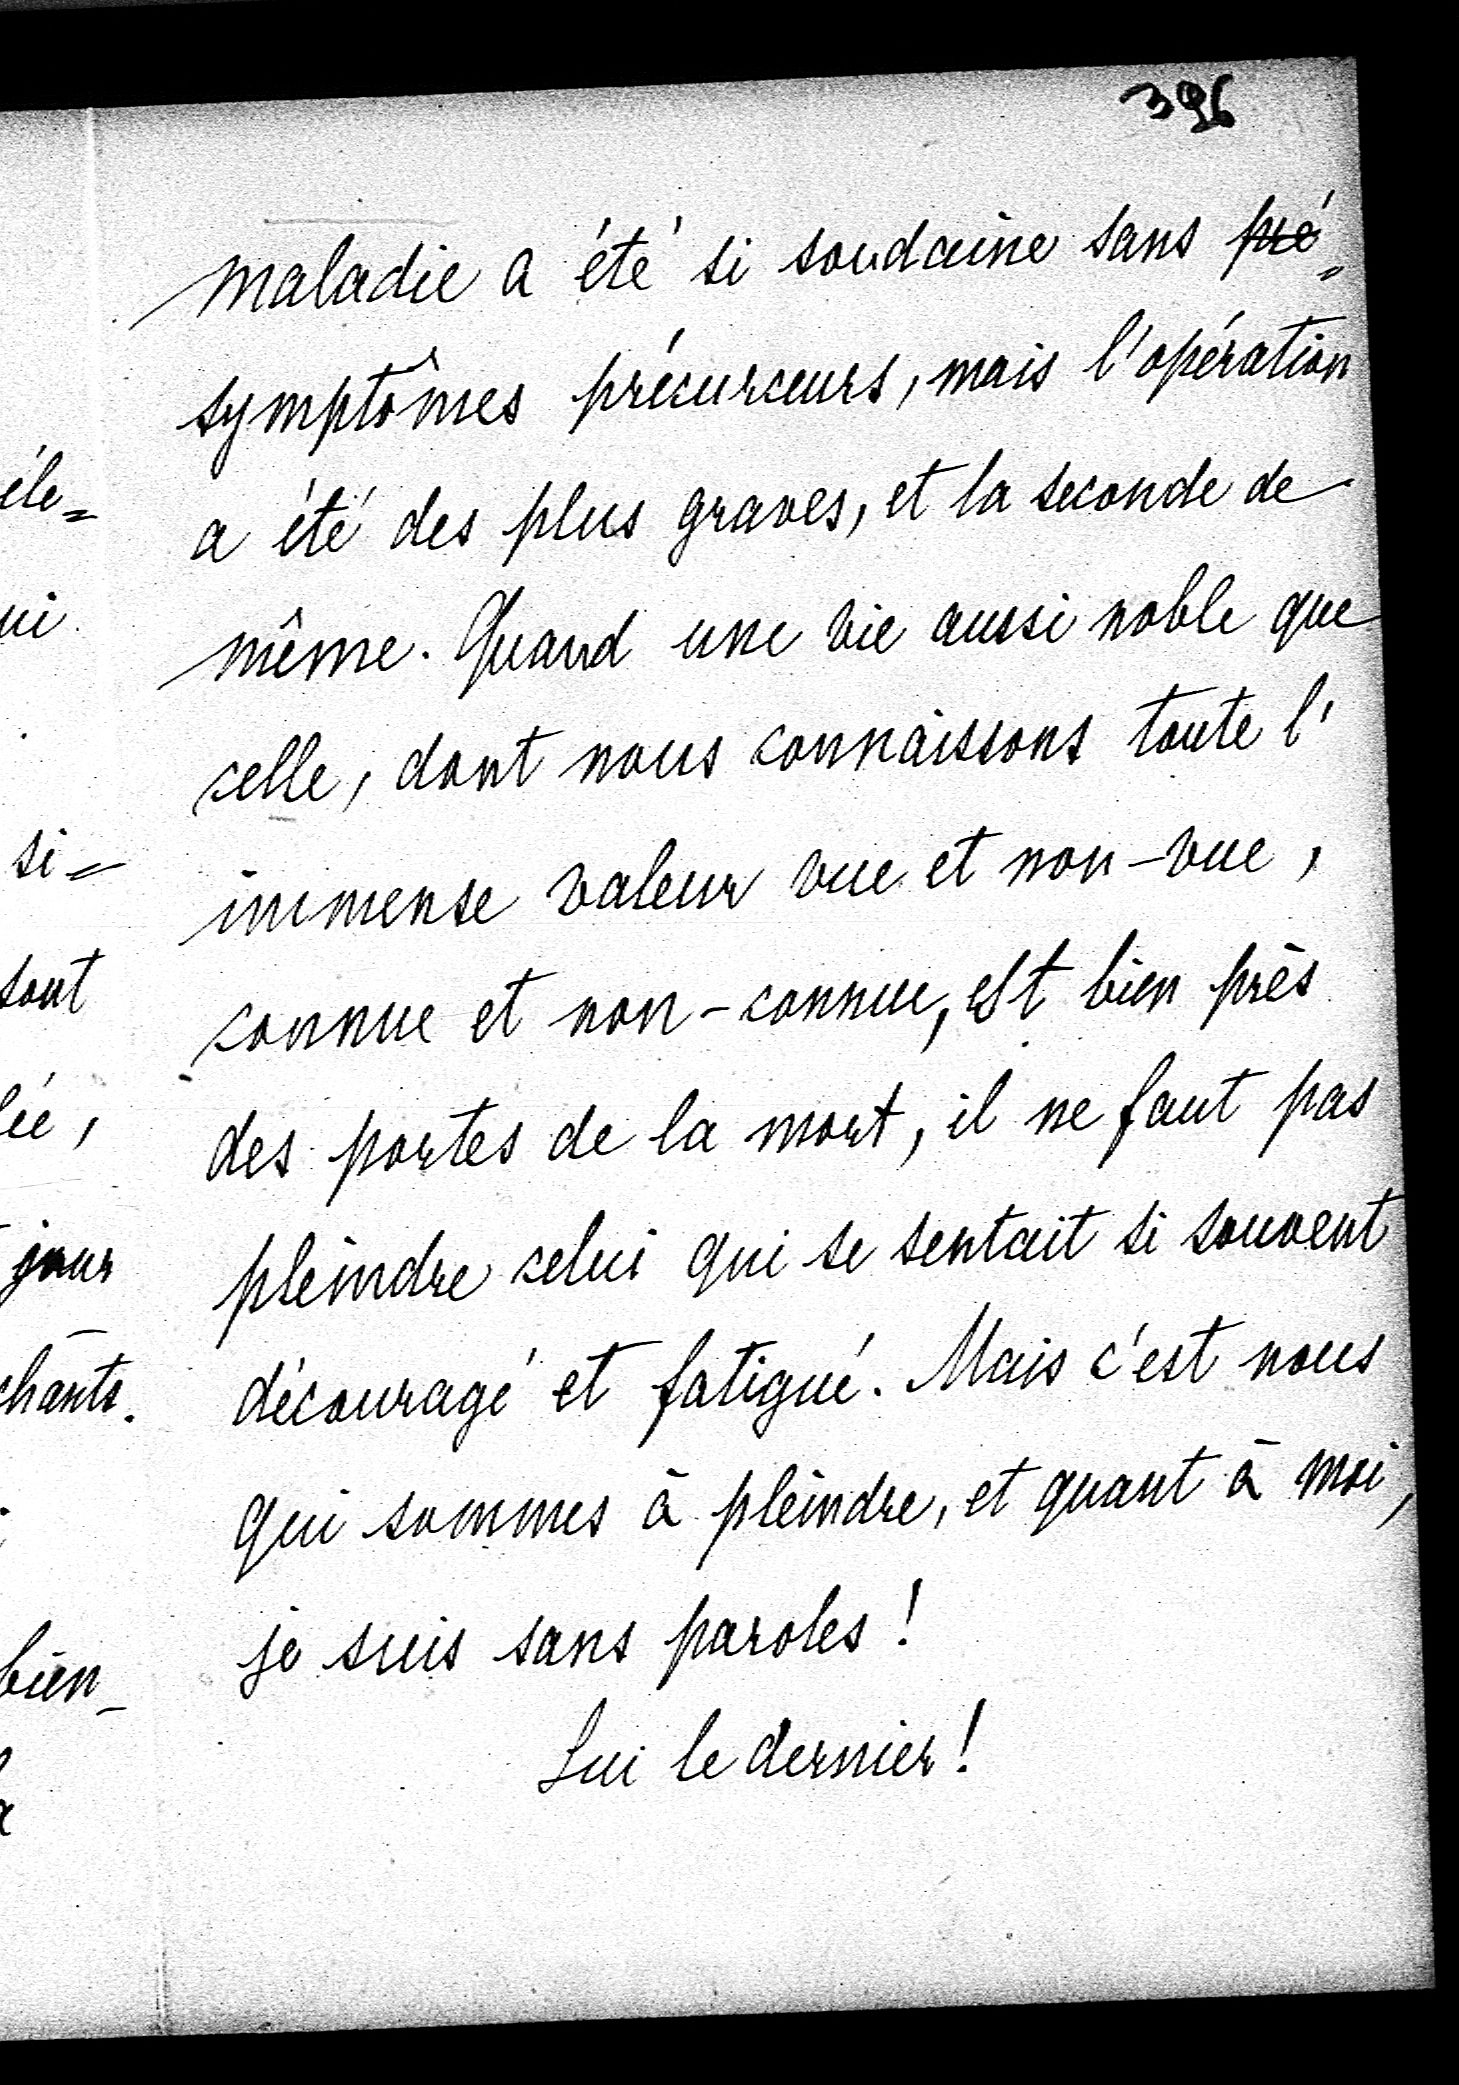 396
maladie a été si soudaine sans pré=
symptômes précurceurs, mais l'opération
a été des plus graves, et la seconde de
même. Quand une vie aussi noble que
celle, dont nous connaissons toute l'
immense valeur vue et non-vue,
connue et non-connue, est bien près
des portes de la mort, il ne faut pas
pleindre celui qui se sentait si souvent
découragé et fatigué. Mais c'est nous
qui sommes à pleindre, et quant à moi,
je suis sans paroles!
Lui le dernier!
éle=
ui
si=
sont
lée,
jour
chants.
bien-